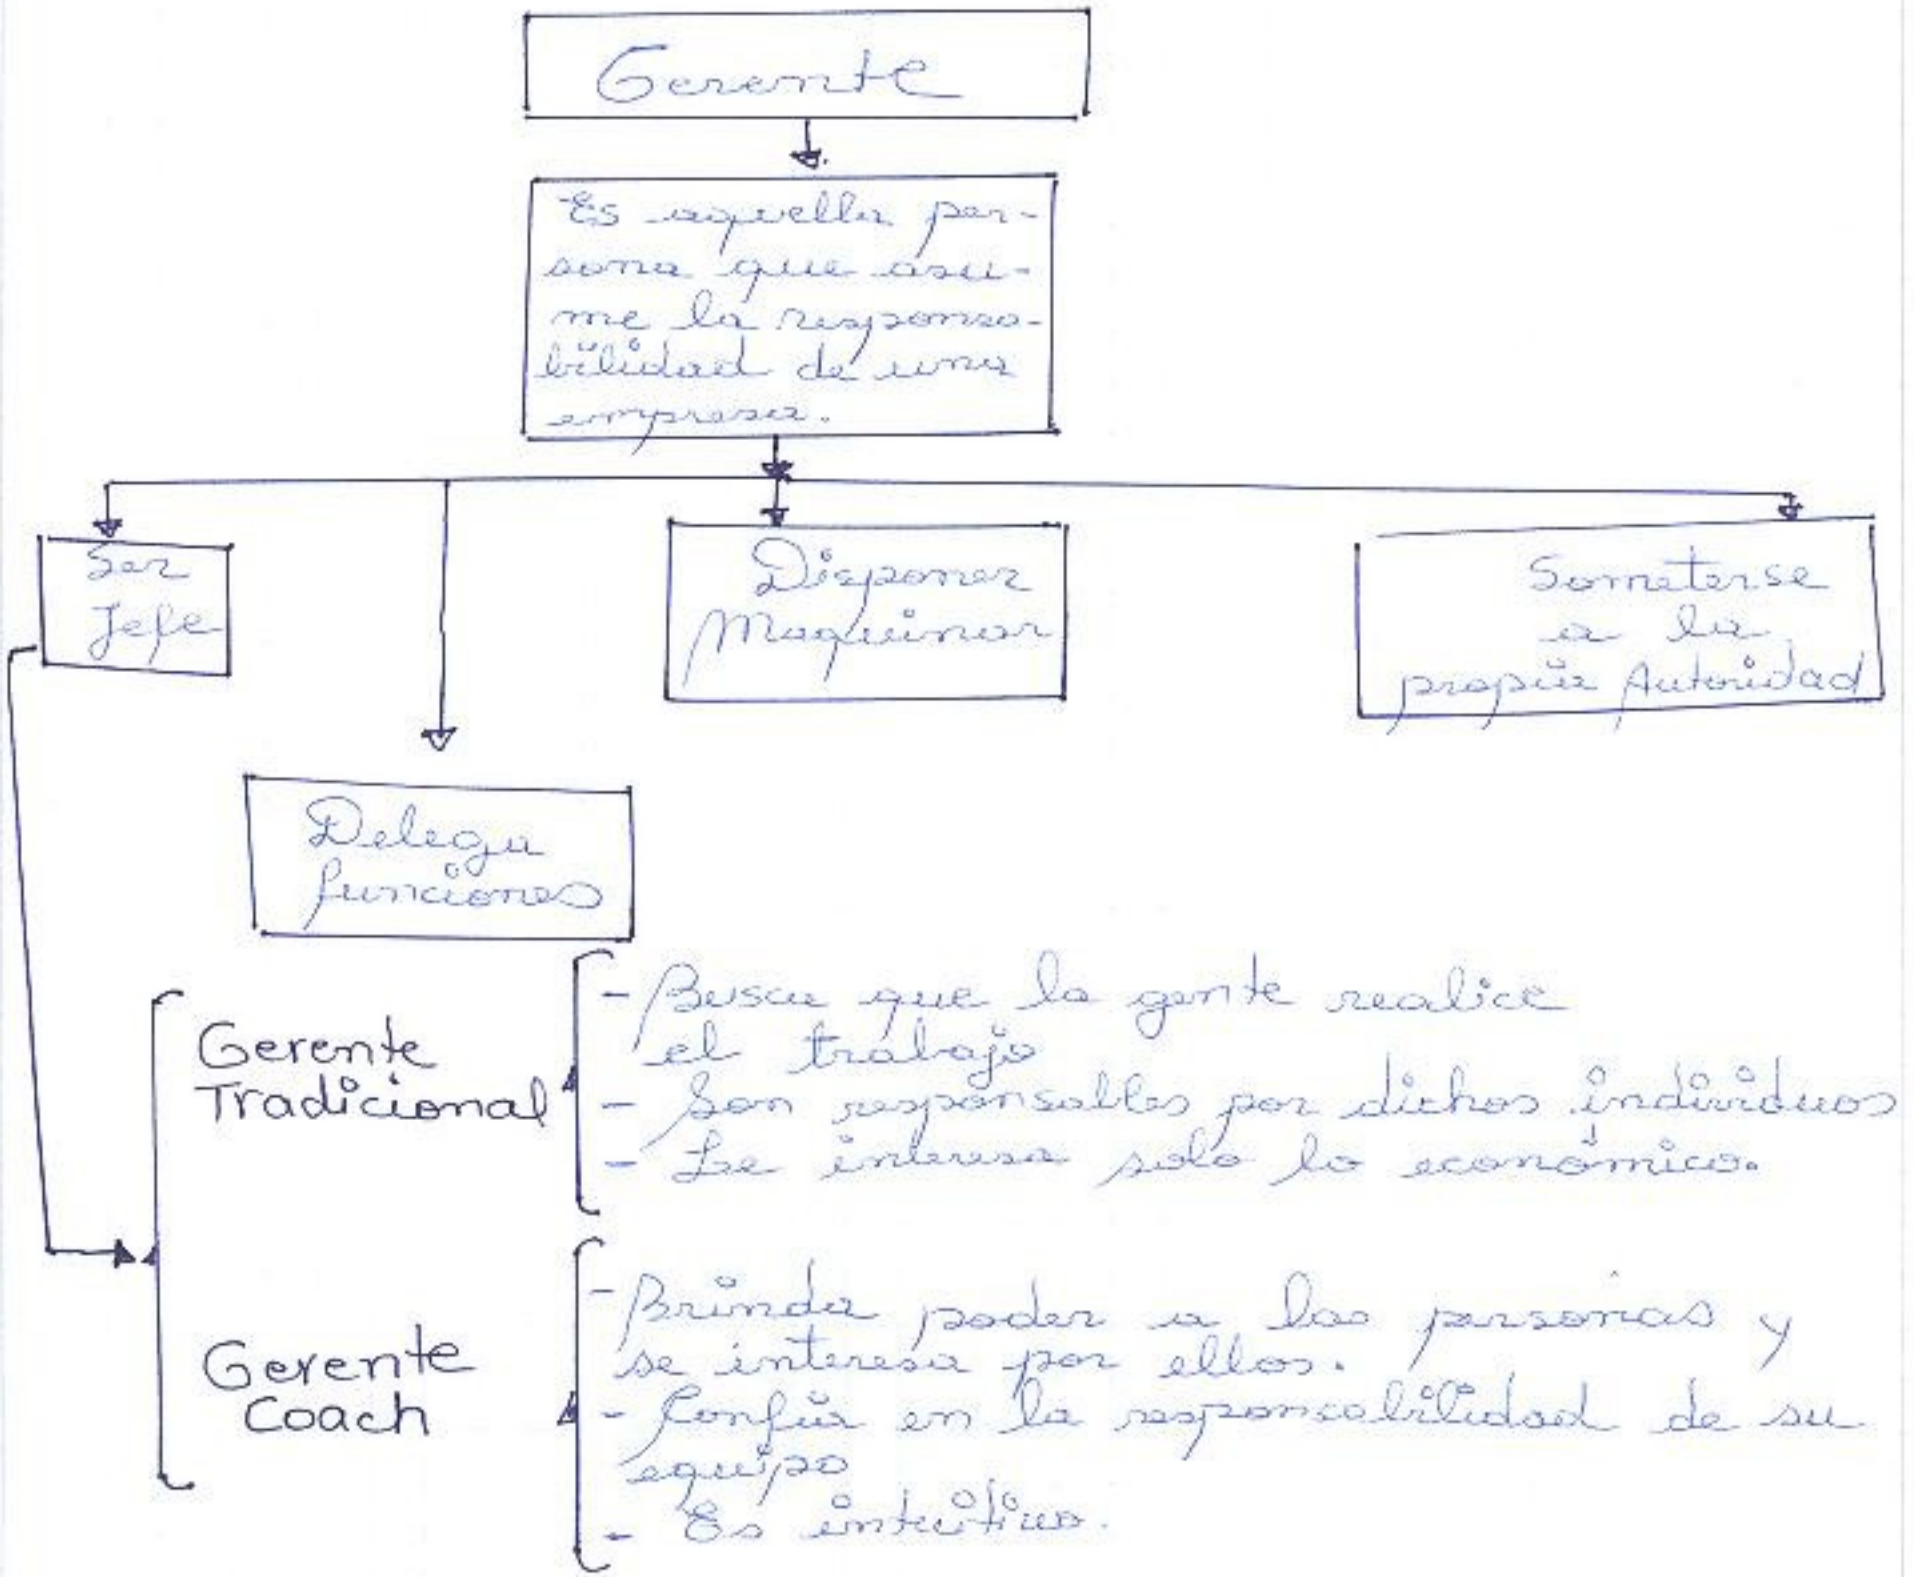 Gerente
Es aquella per-
sona que asu-
me la responsa-
bilidad de una
empresa.
Ser
Jefe
Disponer
Maquinar
Someterse
a la
propia Autoridad
Delega
funciones
Gerente
Tradicional
- Busca que la gente realice
el trabajo
- Son responsables por dichos individuos
- Le interesa solo lo económico.
Gerente
Coach
- Brinda poder a las personas y
se interesa por ellos.
- Confía en la responcabilidad de su
equipo
- Es intuitivo.